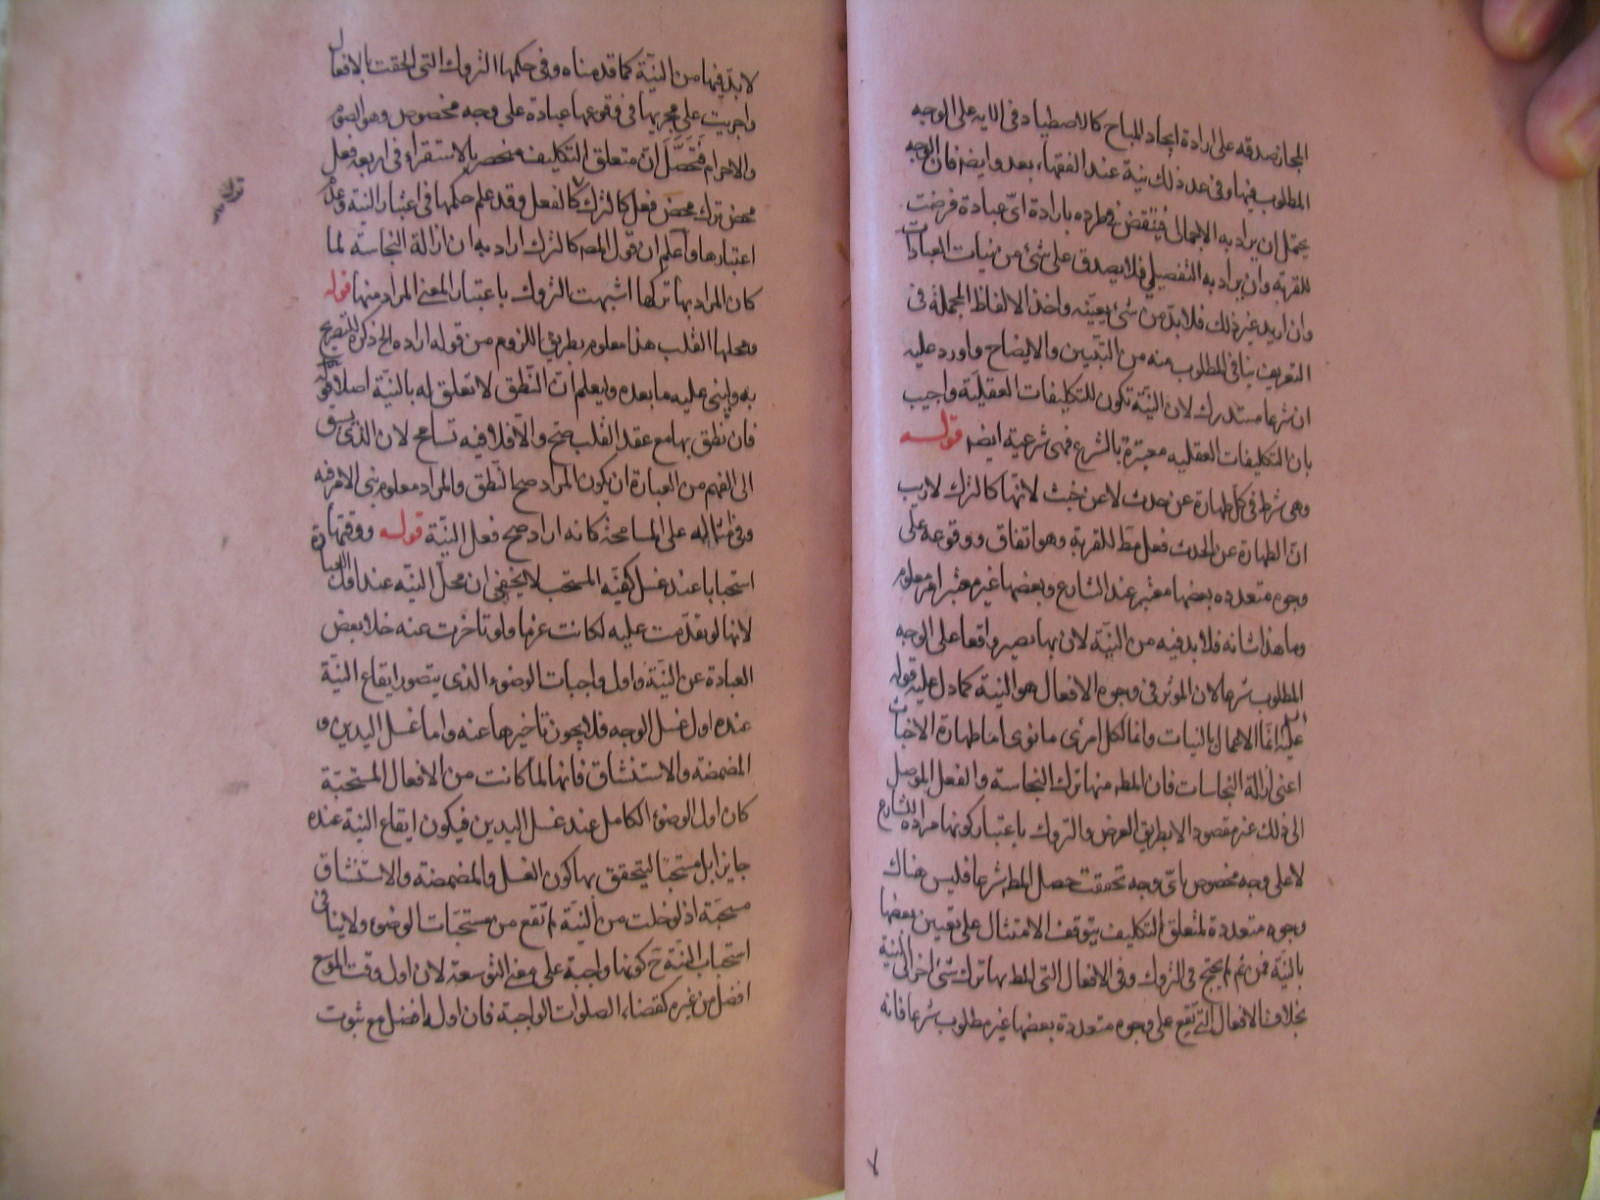 المجاز صدقه على ارادة ايجاد المباح كالاصطياد في الاية على الوجه
المطلوب فيها وفي عد ذلك نية عند الفقهاء بعد وايضا فان الوجه
يحتمل ان يراد به الاجمالي فينتقض في طرده بارادة اى عبادة فرضت
للقربة وان يراد به التفصيلي فلا يصدق على شئ من نيات العبادات
وان اريد غير ذلك فلابد من شئ يعينه واخذ الالفاظ المجملة في
التعريف ينافي المطلوب منه من التبيين والايضاح واورد عليه
ان شرعا مستدرك لان النية تكون للتكليفات العقلية واجيب
بان التكليفات العقليه معتبرة بالشرع فهى شرعية ايضا قوله
وهى شرط في كل طهارة عن حدث لا عن خبث لانها كالترك لاريب
ان الطهارة عن الحدث فعل مط للقربة وهو اتفاق ووقوعه على
وجوه متعدده بعضها معتبر عند الشارع وبعضها غير معتبر امر معلوم
وما هذا شانه فلابد فيه من النية لان بها يصير واقعا على الوجه
المطلوب شرعا لان الموثر في وجوه الافعال هو النية كما دل عليه قوله
عليه انما الاعمال بالنيات وانما لكل امرئ ما نوى اما طهارة الاخباث
اعنى ازالة النجاسات فان المط منها ترك النجاسة والفعل الموصل
الى ذلك غير مقصود الا بطريق العرض والتروك باعتبار كونها مرادة للشارع
لا على وجه مخصوص باى وجه تحققت حصل المط شرعا فليس هناك
وجوه متعددة لمتعلق التكليف يتوقف الامتثال على تعيين بعضها
بالنية فمن ثم لم يحتج في التروك وفي الافعال التى المط بها ترك شئ اخر الى النية
بخلاف الافعال التى تقع على وجوه متعددة بعضها غير مطلوب شرعا فانه
لابد فيها من النية كما قدمناه وفي حكمها التروك التى الحقت بالافعال
واجريت على مجريها في وقوعها عبادة على وجه مخصوص وهو الصوم
والاحرام فتحصل ان متعلق التكليف منحصر بالاستقراء في اربعة فعل
محض ترك محض فعل كالترك كالفعل وقد علم حكمها في اعتبار النية وعدم
اعتبارها واعلم ان قول المصـ كالترك اراد به ان ازالة النجاسة لما
كان المراد بها تركها اشبهت التروك باعتبار المعنى المراد منها قوله
ومحلها القلب هذا معلوم بطريق اللزوم من قوله اراده الخ ذكره للتصريح
به وليبنى عليه ما بعده وليعلم ان النطق لا تعلق له بالنية اصلا قوله
فان نطق بها مع عقد القلب صح والا فلا فيه تسامح لان الذى يسبق
الى الفهم من العبارة ان يكون المراد صح النطق والمراد معلوم بنى الامر فيه
وفي امثاله على المسامحة كانه اراد صح فعل النية قوله ووقتها
استحبابا عند غسل كفيه المستحب لا يخفى ان محل النية عند اول العبادة
لانها لو تقدمت عليه لكانت عزما ولو تاخرت عنه خلا بعض
العبادة عن النية واول واجبات الوضوء الذى يتصور ايقاع النية
عنده اول غسل الوجه فلا يجوز تاخيرها عنه واما غسل اليدين و
المضمضه والاستنشاق فانها لما كانت من الافعال المستحبة
كان اول الوضوء الكامل عند غسل اليدين فيكون ايقاع النية عنده
جايزا بل مستحبا ليتحقق بها كون الغسل والمضمضة والاستنشاق
مستحبة اذ لو خلت من النية لم تقع من مستحبات الوضوء ولا ينافي
استحباب النية ح كونها واجبة على معنى التوسعة لان اول وقت الموسع
افضل من غيره كقضاء الصلوات الواجبة فان اوله افضل مع ثبوت